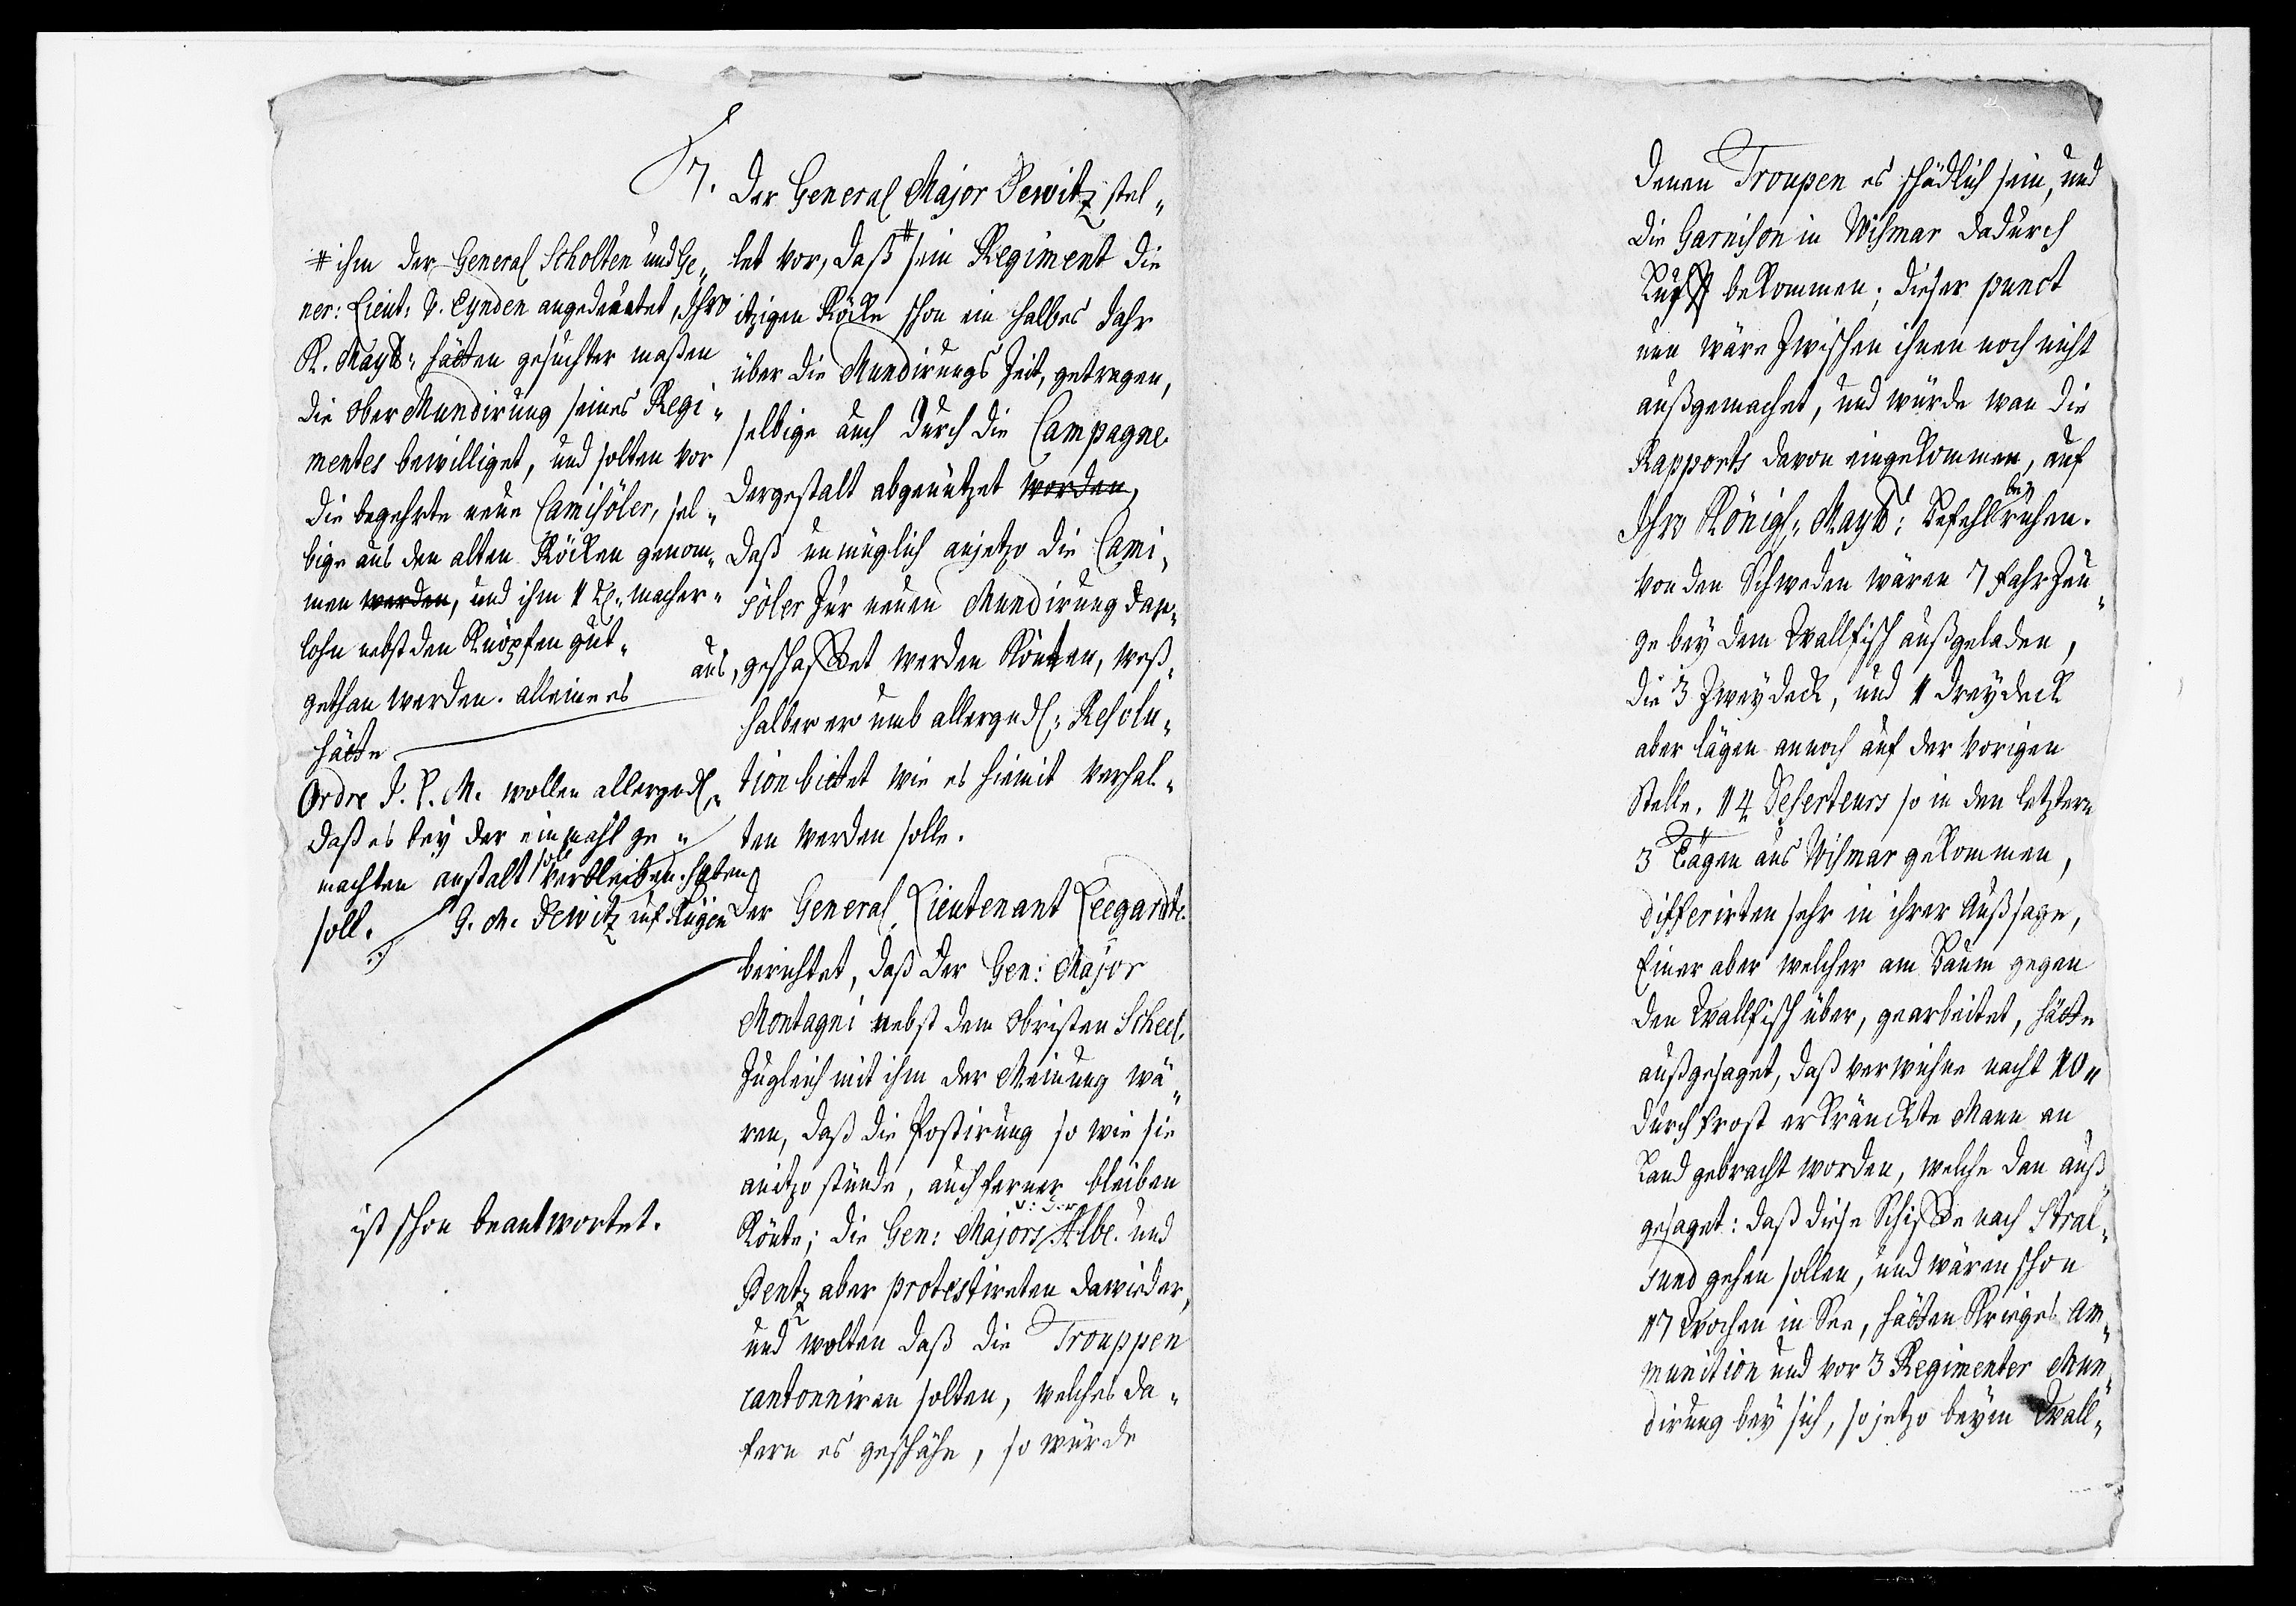 7.
Der General Major Dewitz stel„
let vor, daß # sein Regiment die
itzigen Röcke schon ein halbes Jahr
über die Mundirungs Zeit, getragen,
selbige auch durch die Campagne
dergestalt abgenützet worden,
daß unmüglich anjetzo die Cami„
söler zur neuen Mundirung dar„
aus, geschaffet werden könten, weß„
halber er umb allergndl: Resolu„
tion bittet wie es hiemit verhal„
ten werden solle.
# ihm der General Scholten und Ge„
ner: Lieut: v. Eynden angedeutet, Ihro
K. Mayt: hätten gesuchter maßen
die Ober Mundirung seines Regi„
mentes bewilliget, und solten vor
die begehrte neue Camisöler, sel„
bige aus den alten Röcken genom„
men werden, und ihm 1 macher„
lohn nebst den Knöpfen gut„
gethan werden. alleine es
hätte
Ordre I. K. M. wollen allergndl.
daß es bey der einmahl ge„
machten anstalt soll verbleiben. haben
soll. G. M. Dewitz auf Rügen
Der General Lieutenant Leegardte
berichtet, daß der Gen: Major
Montagni nebst dem Obristen Scheel
zugleich mit ihm der Meinung wä„
ren, daß die Postirung so wie sie
anitzo stünde, auch ferner bleiben
könte; die Gen: Majors v: der Albe und
Pentz aber protestireten dawieder,
und wolten daß die Trouppen
cantonniren solten, welches da„
fern es geschähe, so würde
ist schon beantwortet.
denen Troupen es schädlich sein, und
die Garnison in Wismar dadurch
Lufft bekommen; dieser punct
nun wäre zwischen ihnen noch nicht
außgemachet, und würde wan die
Rapports davon eingekommen, auf
Ihro Königl: Mayt: Befehl beruhen.
Von den Schweden wären 7 Fahrzeu„
ge bey dem Wallfisch außgeladen,
die 3 Zweydeck, und 1 Dreydeck
aber lägen annoch auf der vorigen
Stelle. 14 Deserteurs so in den letztern
3 Tägen aus Wismar gekommen,
differirten sehr in ihrer Außsage,
Einer aber welcher am Baum gegen
den Wallfisch über, gearbeitet, hätte
außgesaget, daß verwichne nacht 10„
durch Frost erkränckte Mann an
Land gebracht worden, welche den auß„
gesaget: daß diese Schiffe nach Stral„
sund gehen sollen, und wären schon
17 Wochen in See, hätten Krieges Am„
munition und vor 3 Regimenter Mun„
dirung bey sich, so jetzo beym Wall„